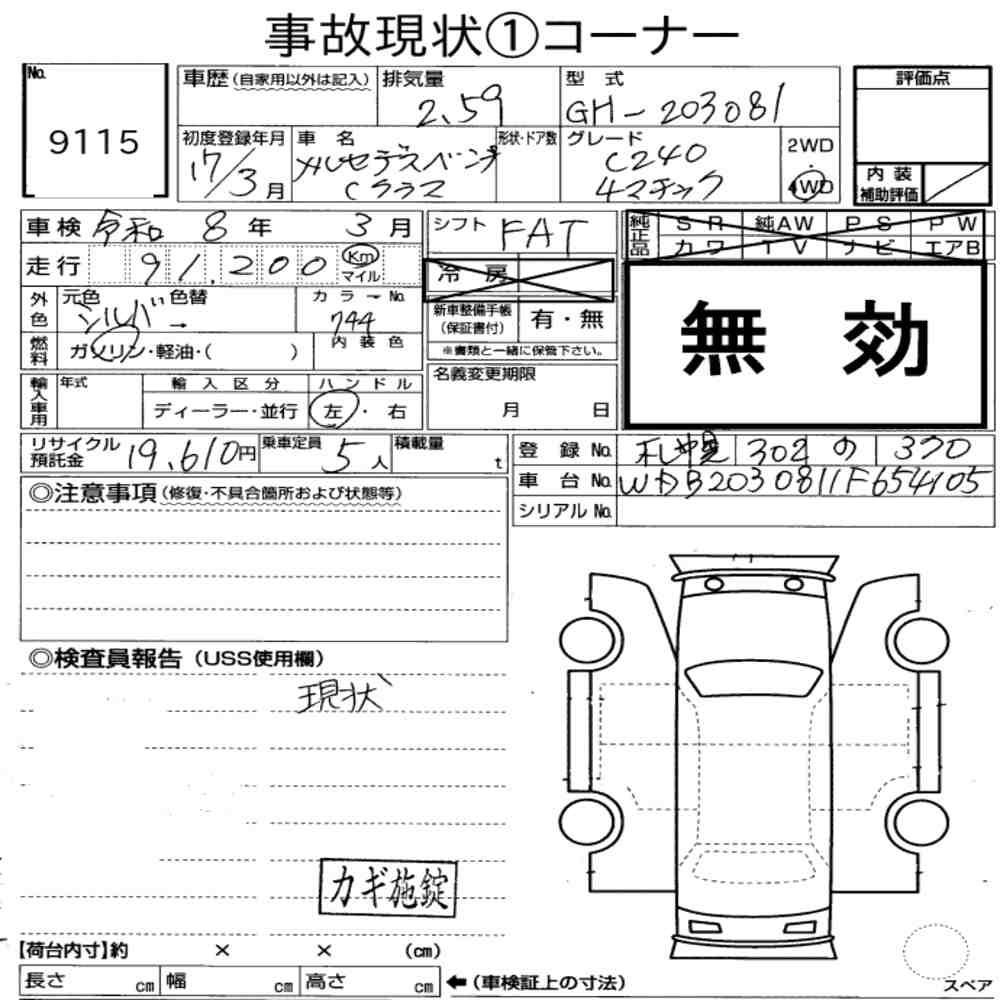 事故現状①コーナー
No.
9115
車歴(自家用以外は記入)
排気量
2.59
型 式
GH-203081
評価点
初度登録年月
17/3月
車 名
メルセデスベンツ
Cクラス
形状・ドア数
グレード
C240
4マチック
2WD
・
4WD
内 装
補助評価
車検 令和 8年 3月
走行 91,200 Km
マイル
シフト FAT
冷 房
純正品
S R 純AW P S P W
カワ T V ナビ エアB
外色
元色 色替
シルバー→
カラーNo.
744
新車整備手帳
(保証書付)
有・無
※書類と一緒に保管下さい。
無 効
燃料
ガソリン・軽油・( )
内装色
輸入車用
年式
輸入区分
ディーラー・並行
ハンドル
左・右
名義変更期限
月 日
リサイクル
預託金
19,610円
乗車定員
5人
積載量
t
登 録 No. 札幌 302 の 370
車 台 No. WDB2030811F654105
シリアル No.
◎注意事項(修復・不具合箇所および状態等)
◎検査員報告(USS使用欄)
現状
カギ施錠
【荷台内寸】約 × × (cm)
長さ cm 幅 cm 高さ cm ←(車検証上の寸法)
スペア